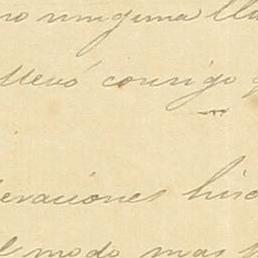 no ninguna lla
llevó consigo
eraciones hisc
el modo mas